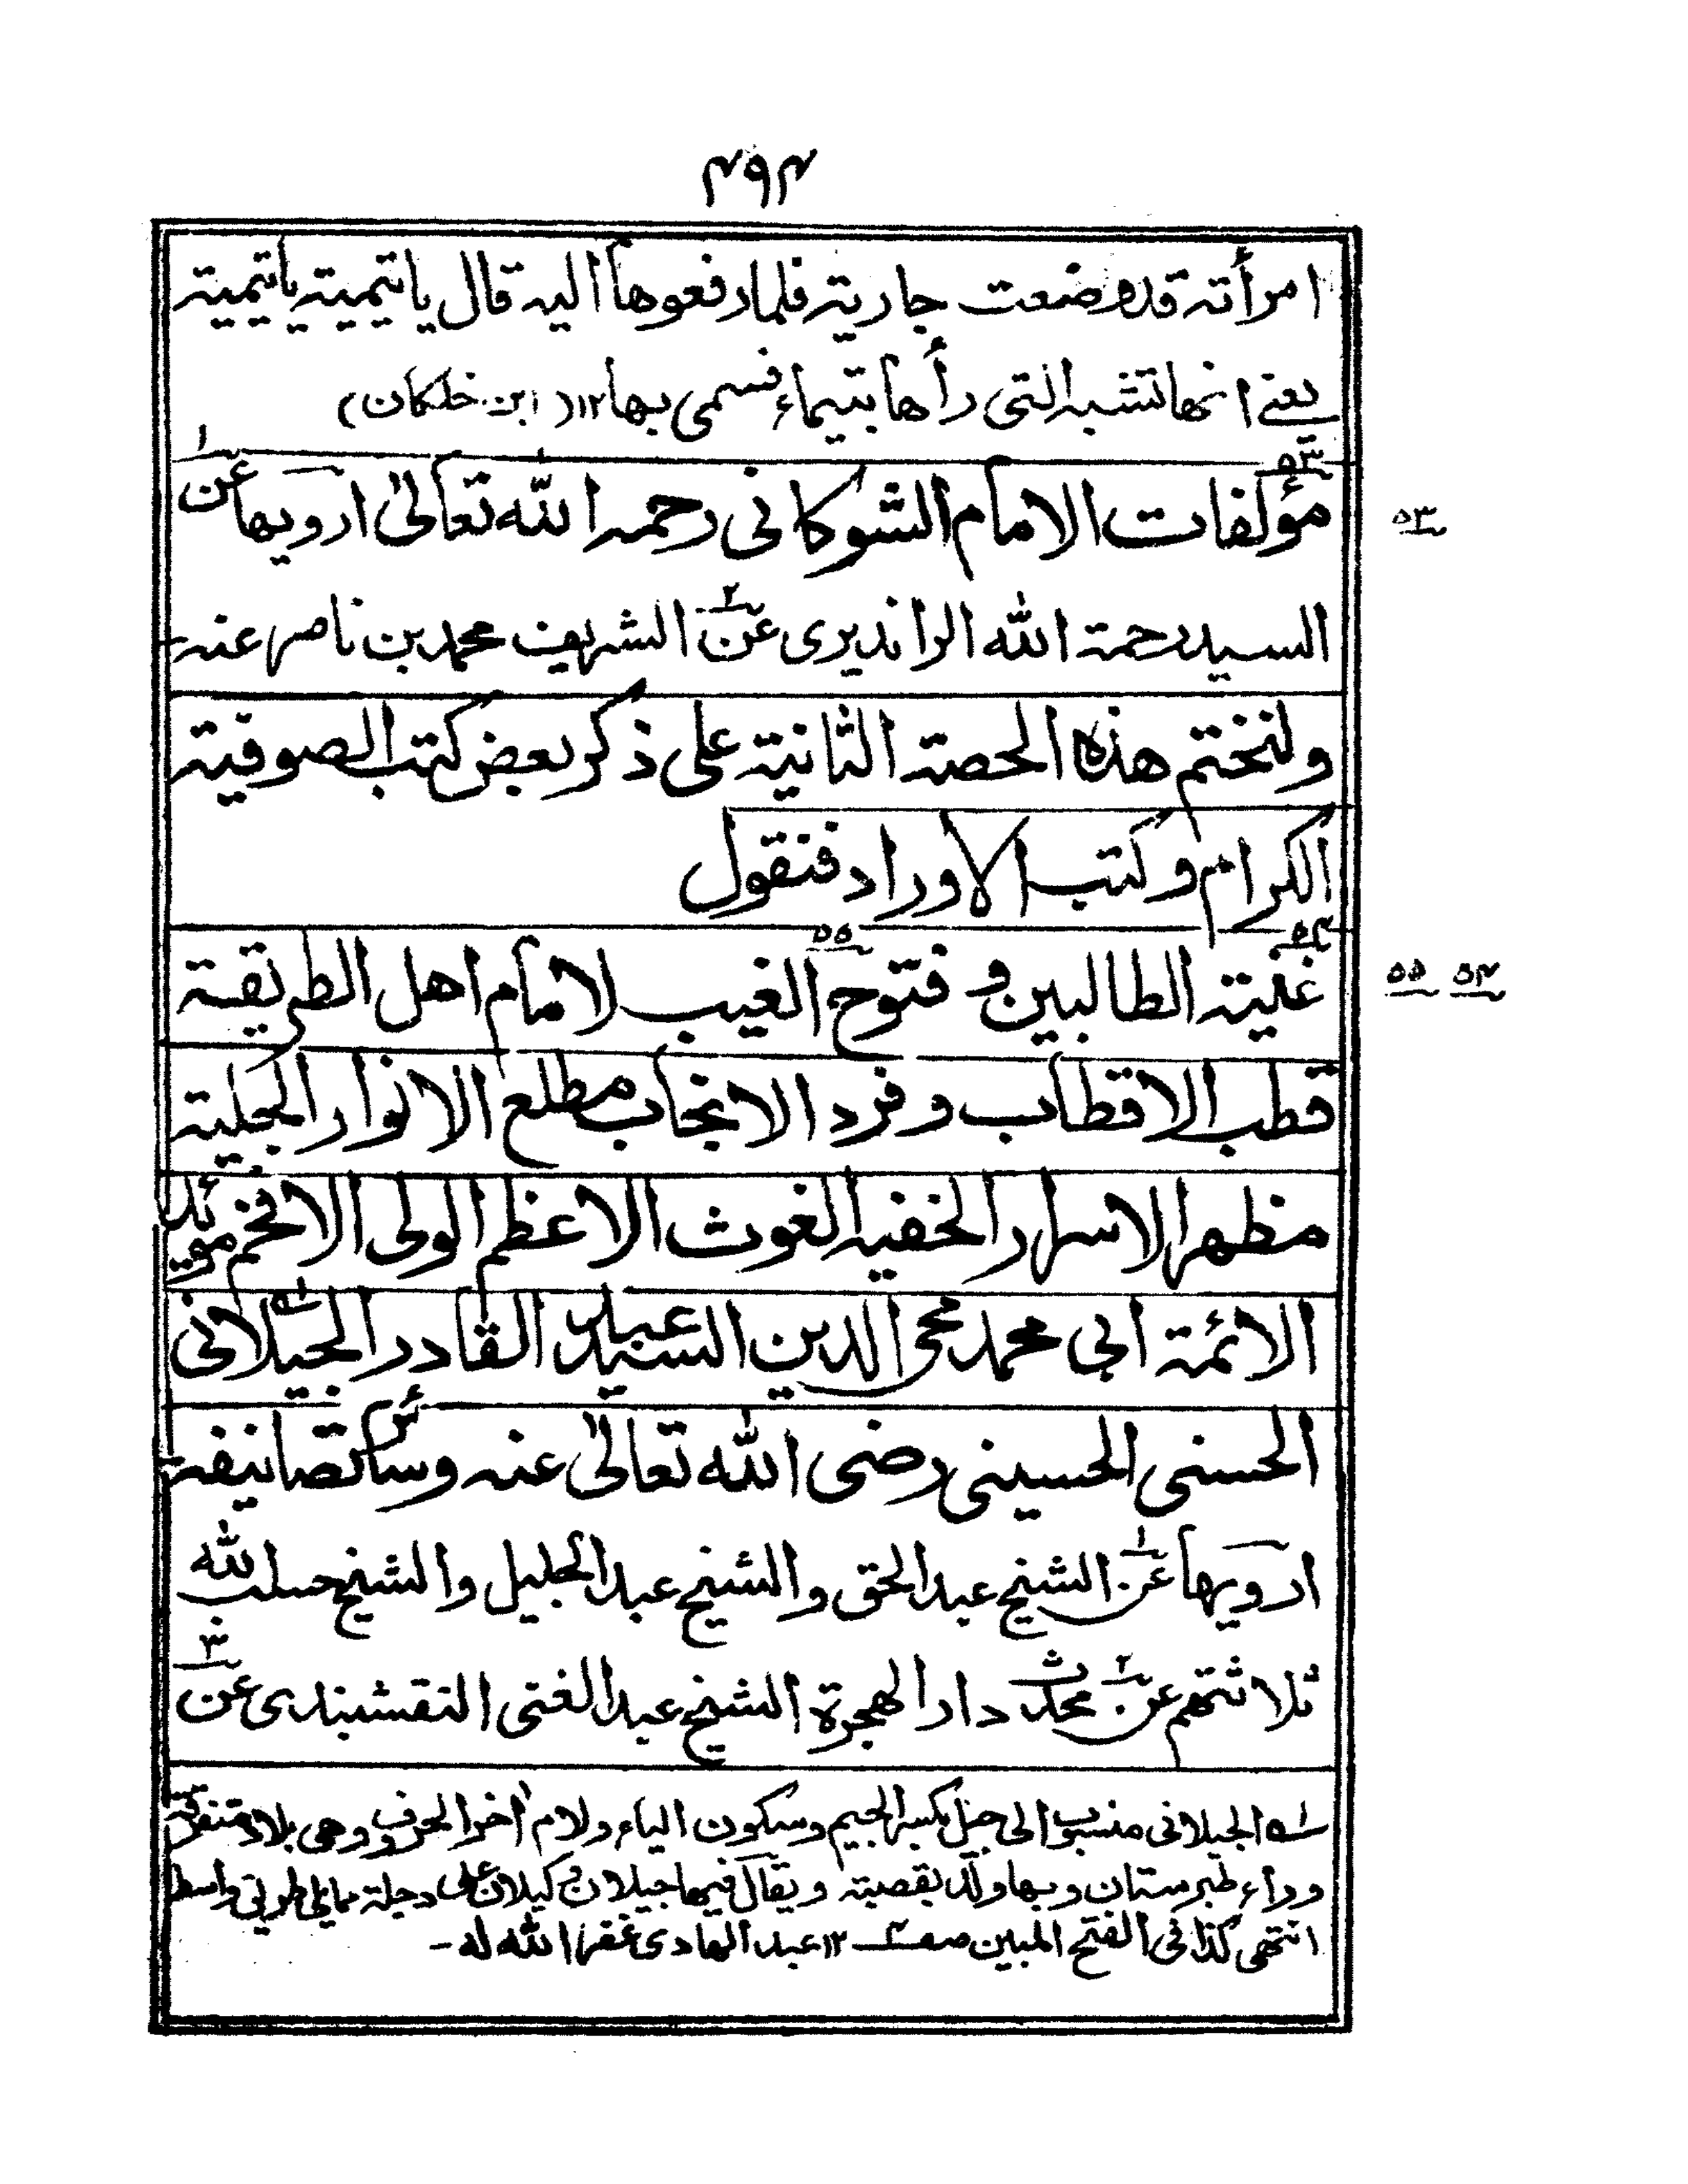 ۴۹۴
امرأته قدوضعت جارية فلمارفعوها اليه قال ياتيمية ياتيمية
يعنے انها تشبه التى رأها بتيماء فسمى بها ١٢ (ابن خلكان)
۵۳
مؤلفات الامام الشوكانى رحمه الله تعالىٰ ارويها عن ١
السيد رحمة الله الرانديرى عن ٢ الشريف محمد بن ناصر عنه
ولنختم هذه الحصة الثانية على ذكر بعض كتب الصوفية
الكرام وكتب الاوراد فنقول
۵۴ ۵۵
غنية الطالبين و فتوح الغيب لامام اهل الطريقة
قطب الاقطاب و فرد الانجاب مطلع الانوار الجلية
مظهر الاسرار الخفية الغوث الاعظم الولى الافخم مويد
الائمة ابي محمد محى الدين السيد عبد القادر الجيلانى
الحسنى الحسينى رضى الله تعالىٰ عنه وسائر تصانيفه
ارويها عن ١ الشيخ عبد الحق والشيخ عبد الجليل والشيخ حسب الله
ثلاثتهم عن ٢ محدث دار الهجرة الشيخ عبد الغنى النقشبندى عن ٣
لـه الجيلانى منسوب الى جيل بكسر الجيم وسكون الياء ولام أخر الحروف وهى بلاد متفرقة
وراء طبرستان وبها ولد بقصبة ويقال فيها جيلان و كيلان على دجلة مما يلى طريق واسط
انتهى كذا فى الفتح المبين صفـ ١٢ عبد الهادى غفر الله له -